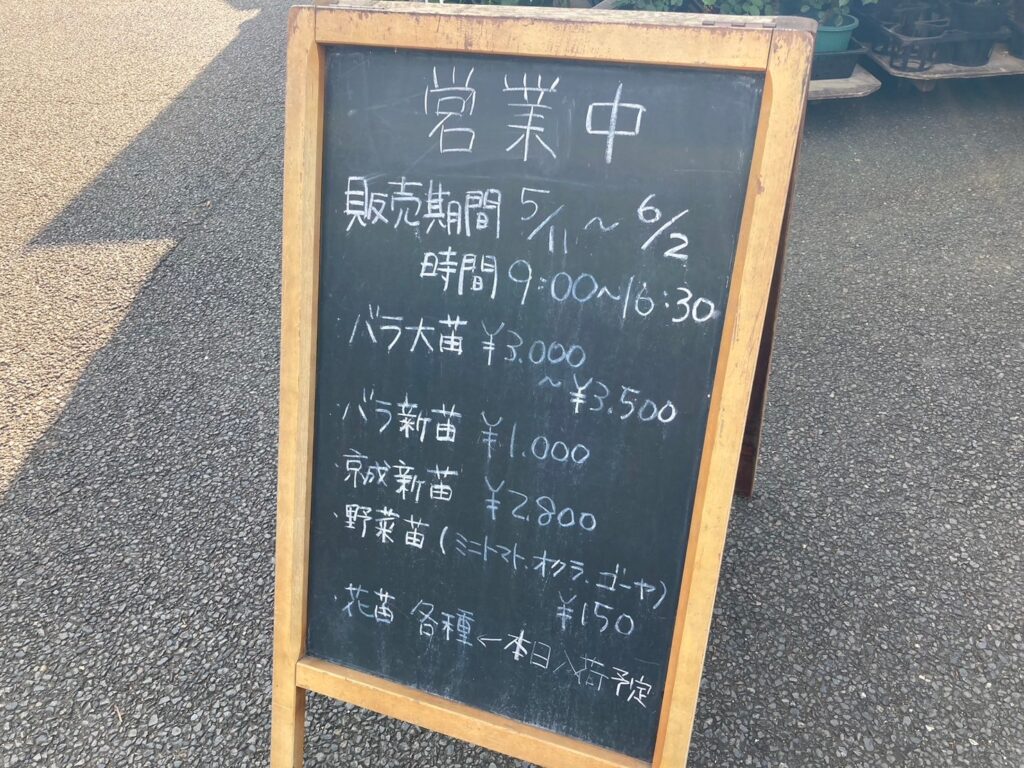 営業中
販売期間 5/11～6/2
時間 9:00～16:30
・バラ大苗 ¥3.000
～¥3.500
・バラ新苗 ¥1.000
・京成新苗 ¥2.800
・野菜苗(ミニトマト、オクラ、ゴーヤ)
¥150
・花苗 各種←本日入荷予定